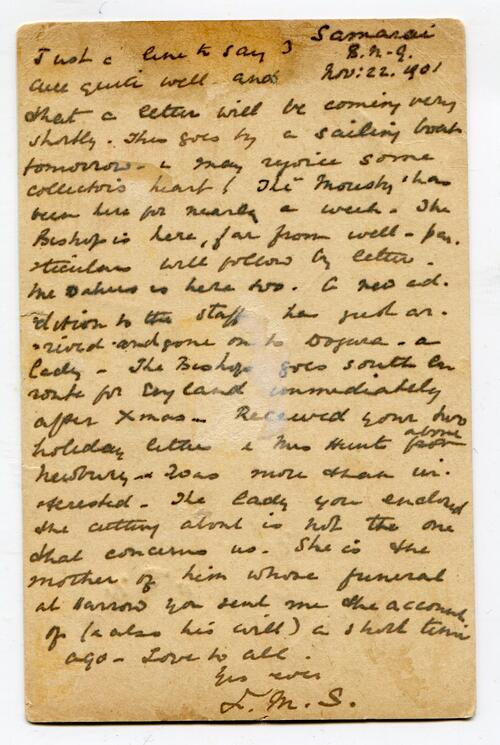 Samarai
B.N.G.
Nov: 22. 1901
Just a line to say I
am quite well - and
that a letter will be coming very
shortly. This goes by a sailing boat
tomorrow - & may rejoice some
collector's heart! The "Moresby" has
been here for nearly a week. The
Bishop is here, far from well - par-
ticulars will follow by letter.
is here too. A new ad-
dition to the staff has just ar-
rived and gone on to Dogura - a
lady - The Bishop goes south en
route for England immediately
after Xmas - Received your two
holiday letters & Mrs Hunt's above from
Newbury - & was more than in-
terested. The lady you enclosed
the cutting about is not the one
that concerns us. She is the
mother of him whose funeral
at Harrow you sent me the account
of (& also his will) a short time
ago - Love to all.
Yrs ever
F. M. S.